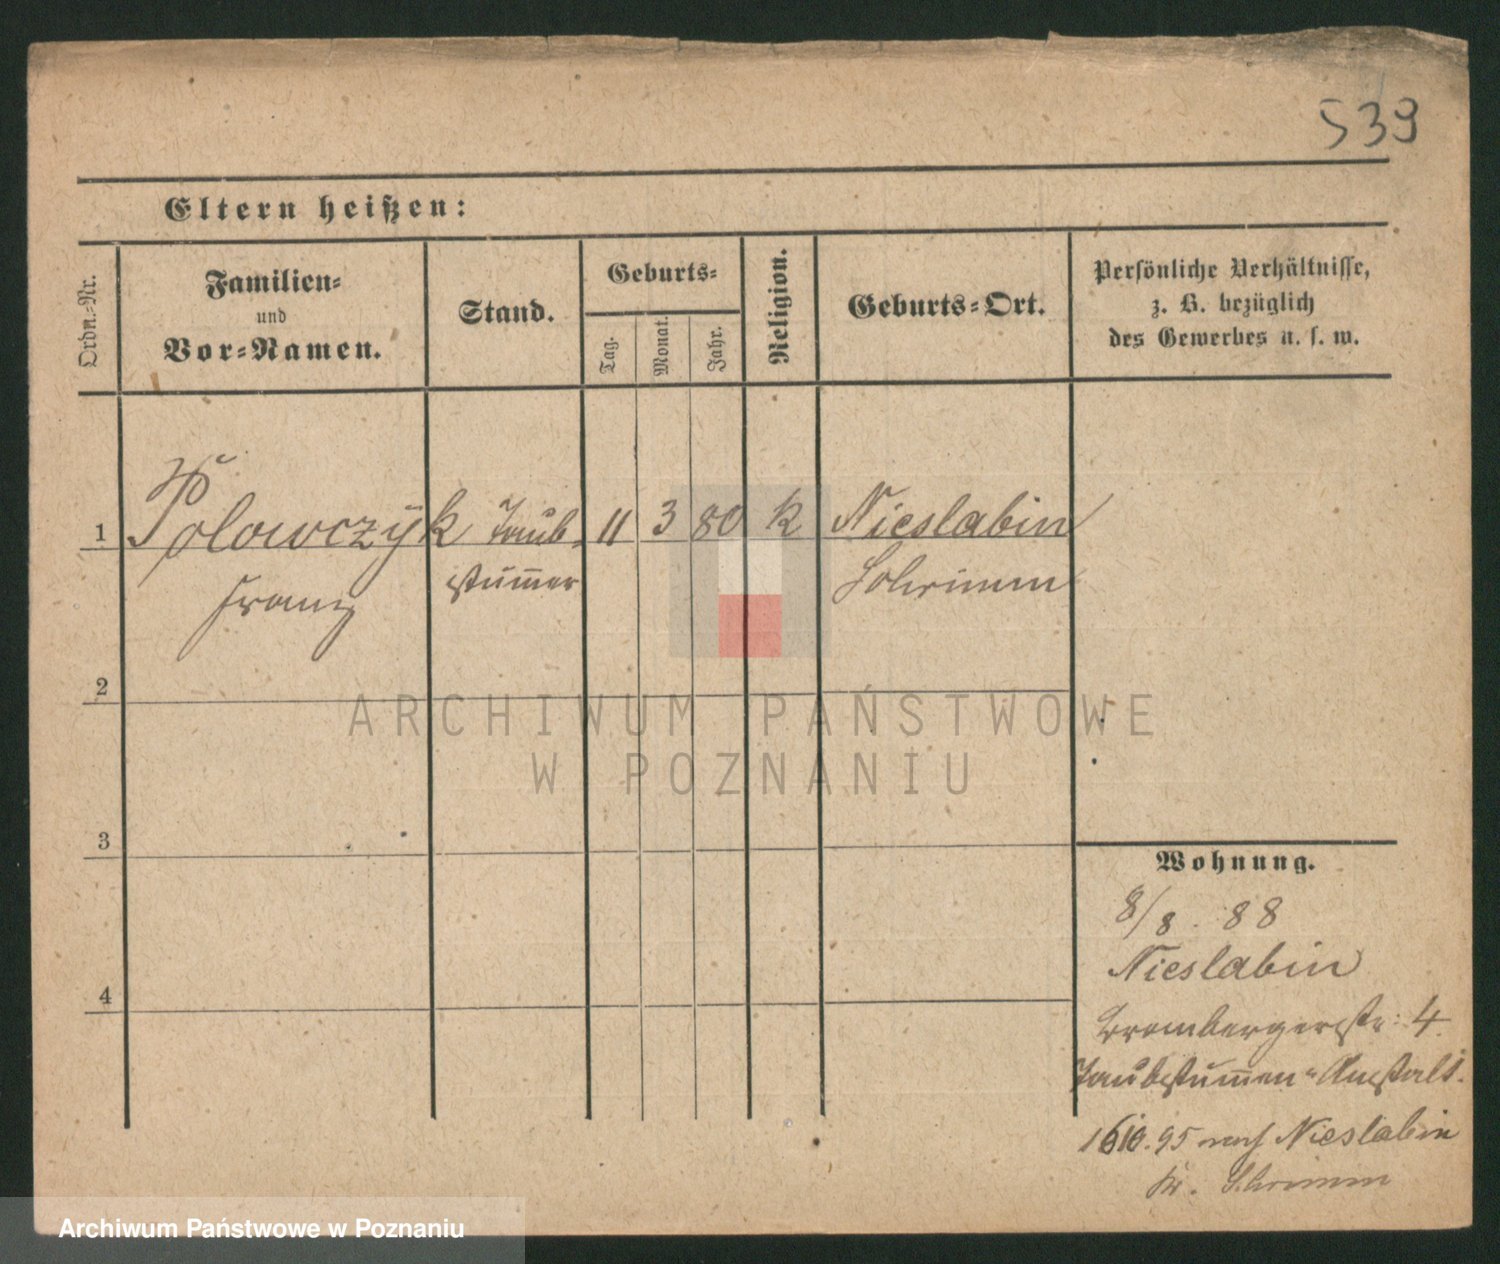 539
Eltern heißen:
Ordn.-Nr.
Familien-
und
Vor-Namen.
Stand.
Geburts-
Tag.
Monat.
Jahr.
Religion.
Geburts-Ort.
Persönliche Verhältnisse,
z. B. bezüglich
des Gewerbes u. s. w.
1 Polowczyk Taub- 11 3 80 k Nieslabin
Franz stum̄er Schrimm
2
3
4
Wohnung.
8/8. 88
Nieslabin
Brombergerstr: 4
Taubstum̄en-Anstalt.
16/10. 95 nach Nieslabin
Kr. Schrimm
ARCHIWUM PAŃSTWOWE
W POZNANIU
Archiwum Państwowe w Poznaniu